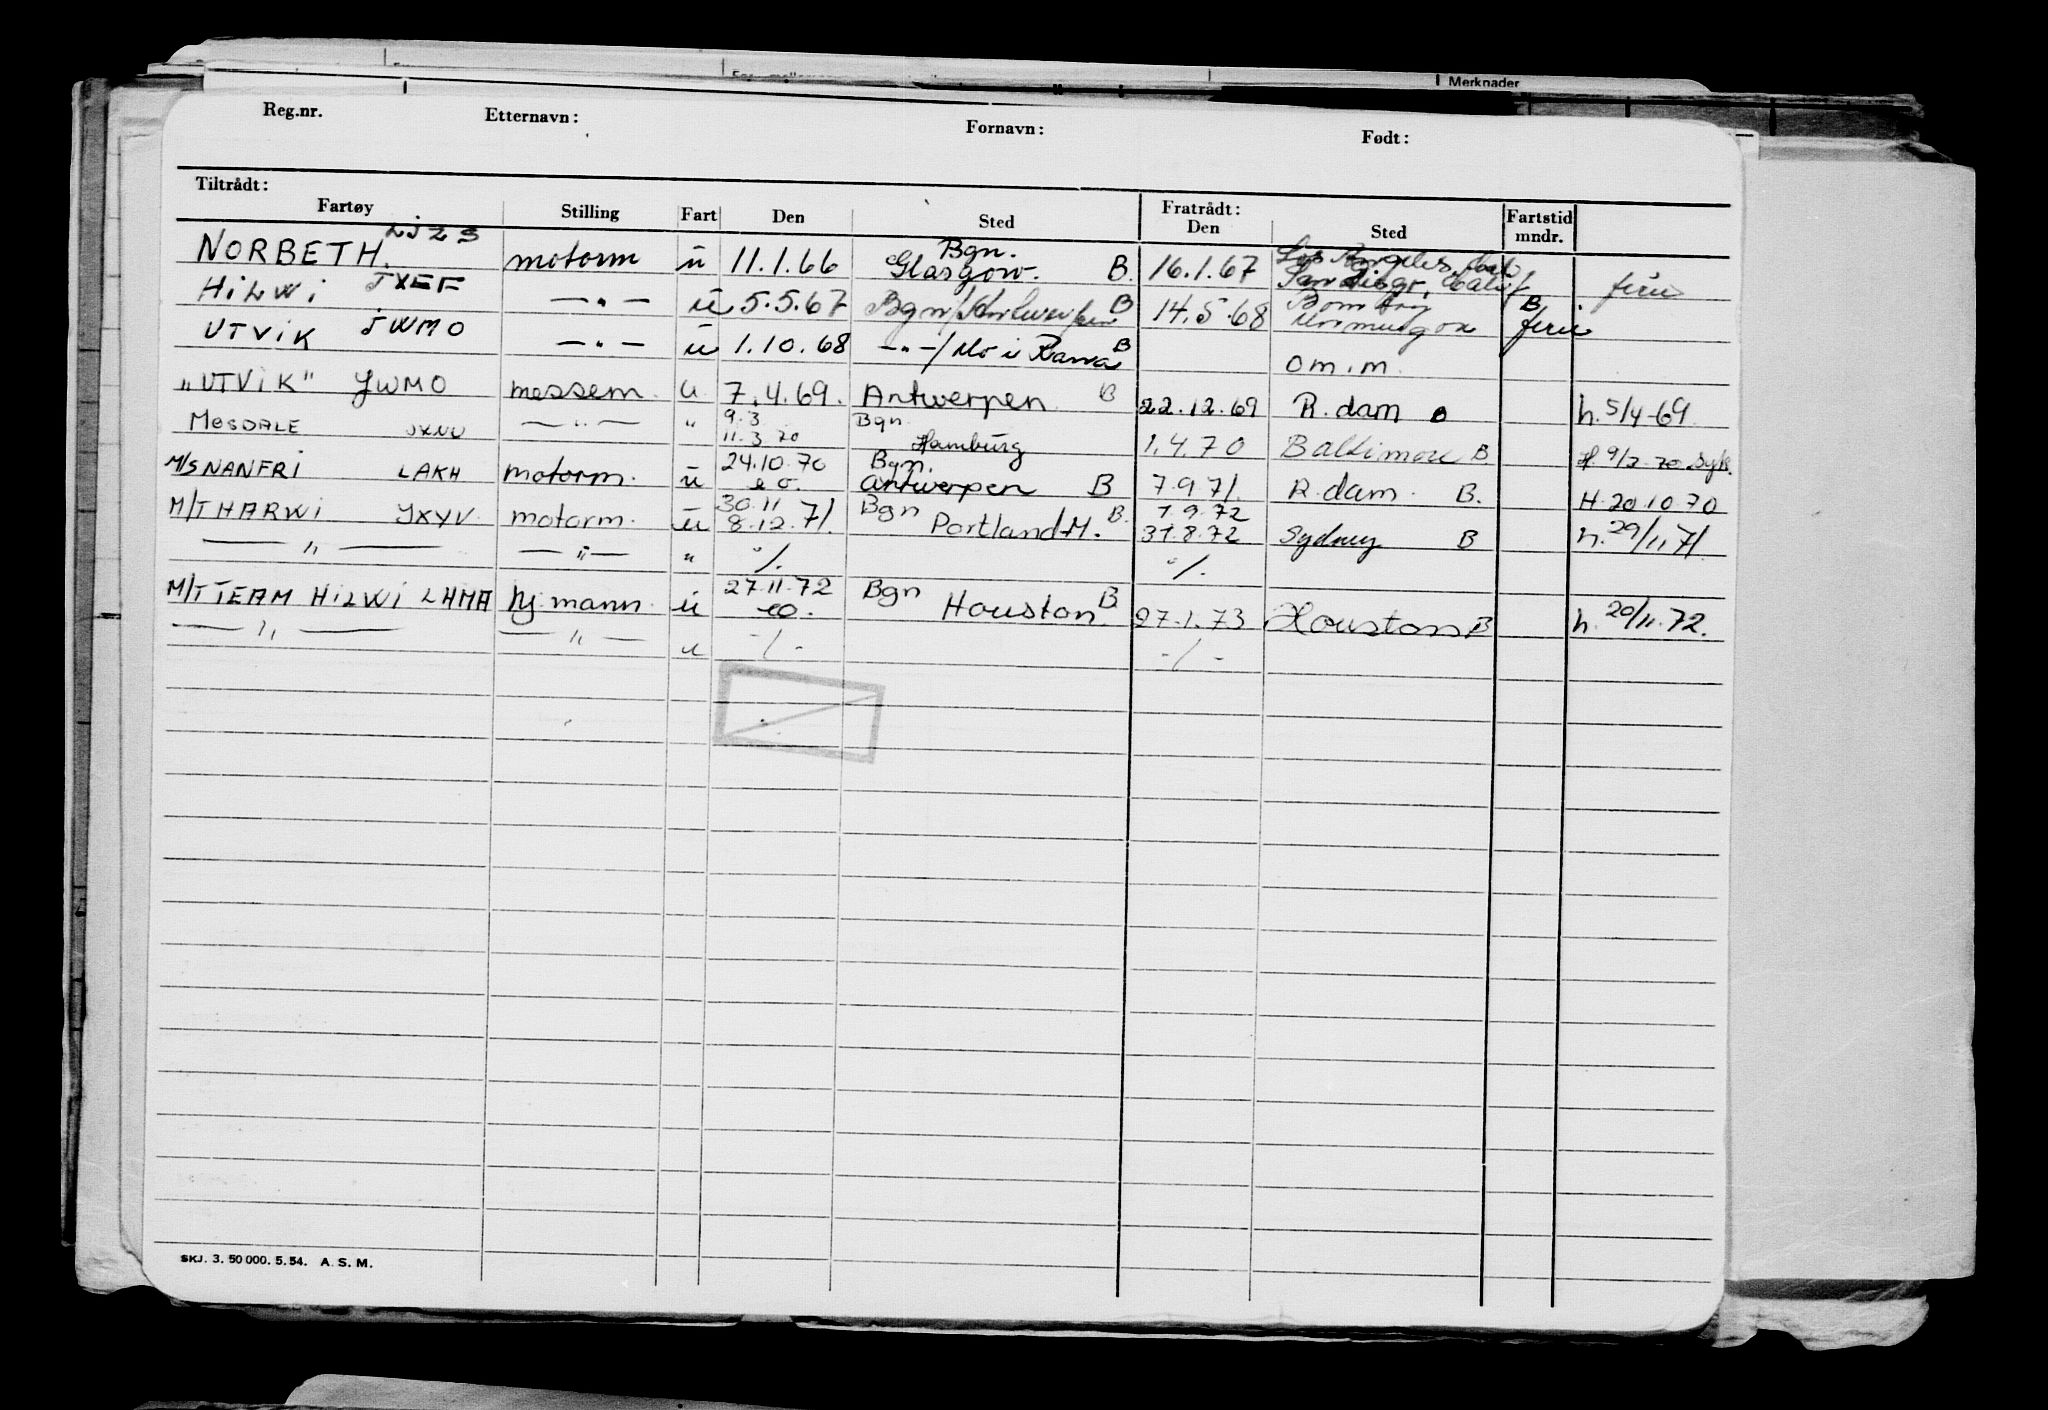 Merknader
Reg.nr. Etternavn: Fornavn: Født:
Tiltrådt: Fratrådt:
Fartøy Stilling Fart Den Sted Den Sted Fartstid mndr.
NORBETH. LJZS motorm ü 11.1.66 Bgn. Glasgow. B. 16.1.67 Los Angeles, Cal. San Diego, Calif ferie
HiLWi JXEF —"— ü 5.5.67 Bgn/Antwerpen B 14.5.68 Bombay Mormugoa B ferie
UTViK JWMO —"— ü 1.10.68 —"—/Mo i Rana B om.m.
"UTViK" JWMO messem. u 7.4.69. Antwerpen B 22.12.69 R.dam B h. 5/4-69
MOSDALE JXNU —"— " 9.3 11.3.70 Bgn. Hamburg 1.4.70 Baltimore B H. 9/3-70 Syk.
M/S NANFRi LAKH motorm. ü 24.10.70 e o. Bgn. Antwerpen B 7.9.71. R.dam. B. H.20.10.70
M/T HARWi JXYV motorm. ü 30.11 8.12.71. Bgn Portland-M. B. 1.9.72 31.8.72 Sydney B h. 29/11 71.
—"— —"— " "/. "/.
M/T TEAM HiLWi LHMA hj.mann. ü 27.11.72 eo. Bgn Houston. B 27.1.73 Houston B h. 20/11.72.
—"— —"— u -/- -/-
SKJ. 3. 50 000. 5. 54. A. S. M.